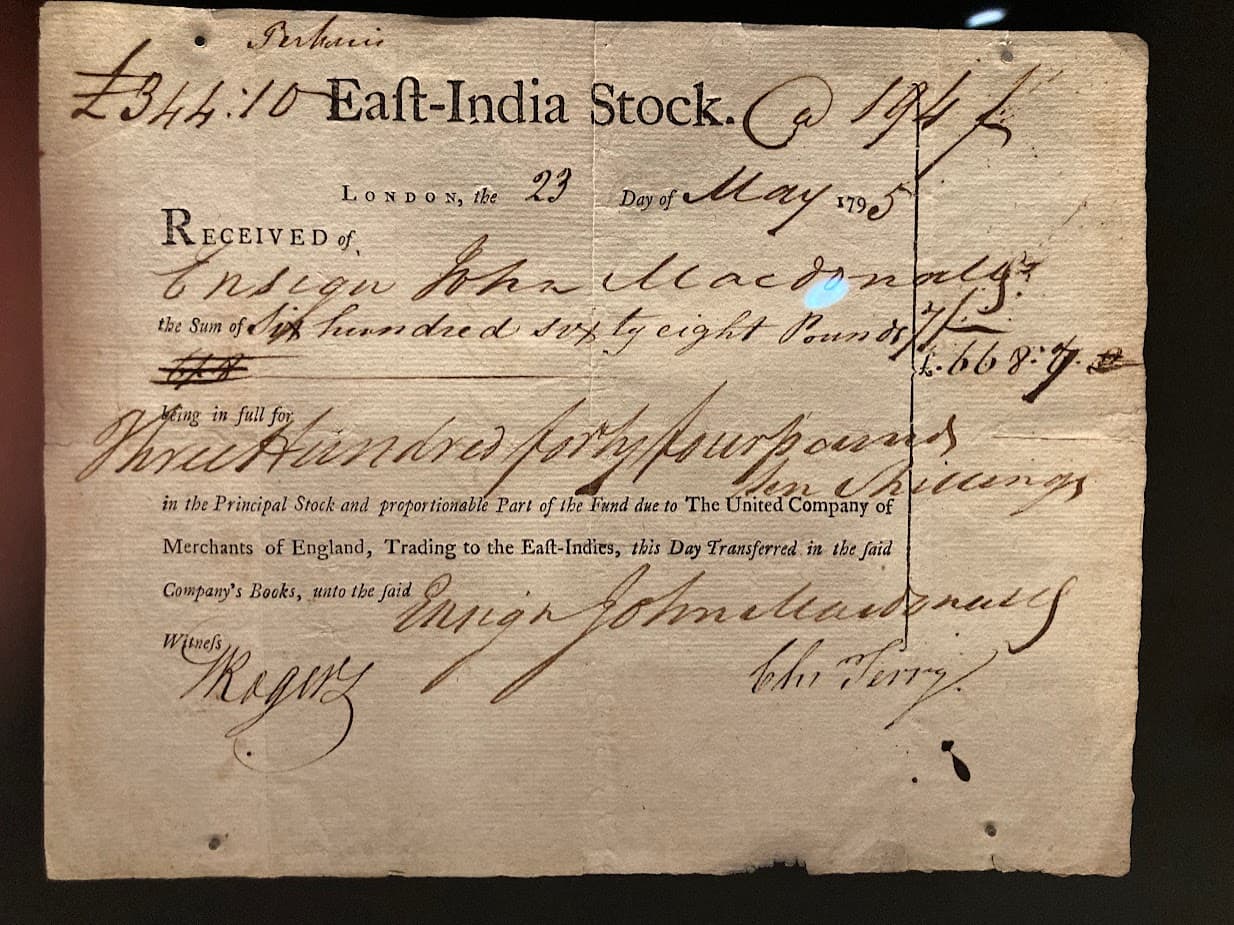 £344:10 Eaſt-India Stock. @ 194
LONDON, the 23 Day of May 1795
RECEIVED of
Ensign John Macdonald
the Sum of Six hundred sixty eight Pounds 7/
£.668:7.
being in full for
Three Hundred forty four pounds
Ten Shillings
in the Principal Stock and proportionable Part of the Fund due to The United Company of
Merchants of England, Trading to the Eaſt-Indies, this Day Transferred in the ſaid
Company's Books, unto the ſaid Ensign John Macdonald
Witneſs
Rogers
Chr Terry.